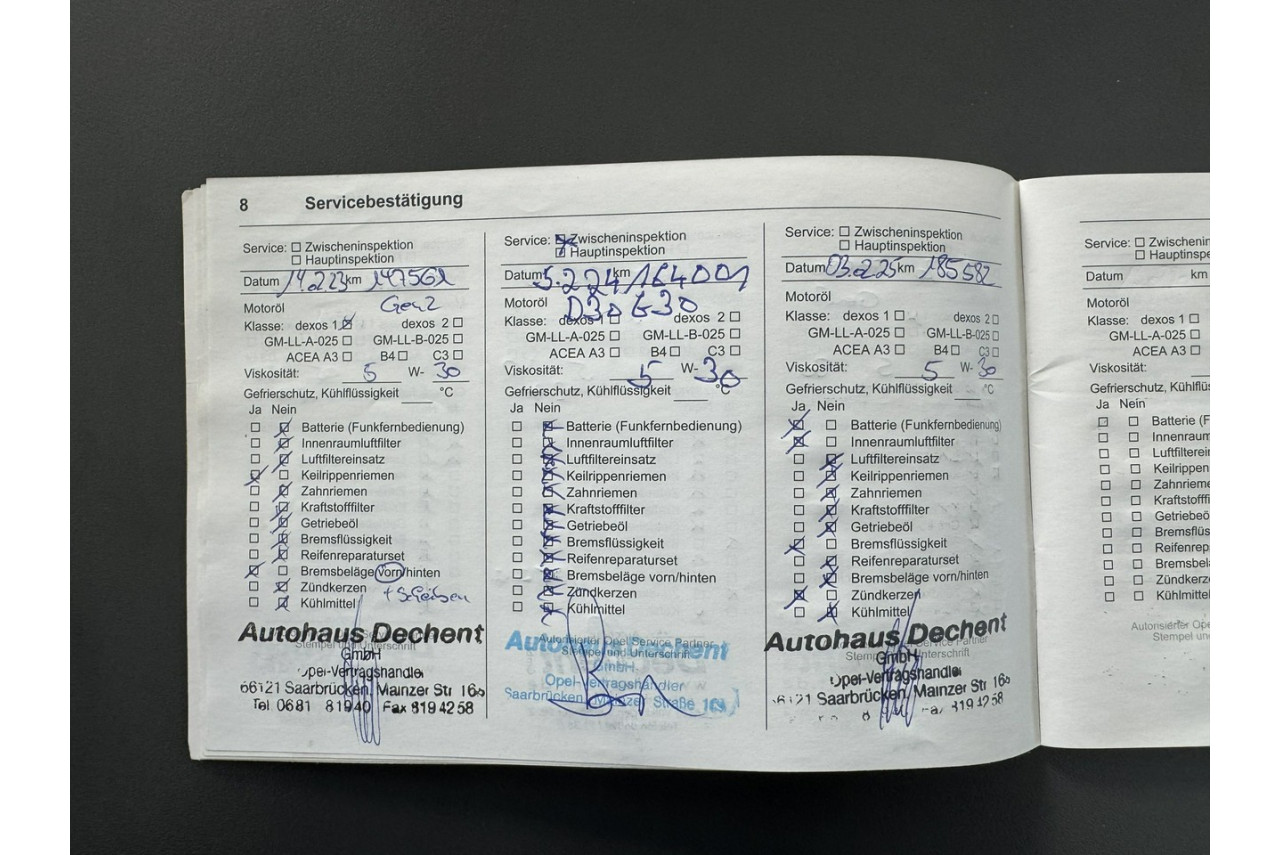 8 Servicebestätigung
Service: ☐ Zwischeninspektion
☐ Hauptinspektion
Datum 14.02.23 km 147562
Motoröl Gen2
Klasse: dexos 1 ☒ dexos 2 ☐
GM-LL-A-025 ☐ GM-LL-B-025 ☐
ACEA A3 ☐ B4 ☐ C3 ☐
Viskosität: 5 W- 30
Gefrierschutz, Kühlflüssigkeit ____ °C
Ja Nein
☐ ☒ Batterie (Funkfernbedienung)
☐ ☒ Innenraumluftfilter
☐ ☒ Luftfiltereinsatz
☒ ☐ Keilrippenriemen
☐ ☒ Zahnriemen
☐ ☒ Kraftstofffilter
☐ ☒ Getriebeöl
☐ ☒ Bremsflüssigkeit
☐ ☒ Reifenreparaturset
☒ ☐ Bremsbeläge vorn/hinten
☐ ☒ Zündkerzen + Scheiben
☐ ☒ Kühlmittel
Autohaus Dechent
Stempel und Unterschrift
GmbH
Opel-Vertragshändler
66121 Saarbrücken, Mainzer Str 168
Tel 0681 81940 Fax 8194258
Service: ☒ Zwischeninspektion
☒ Hauptinspektion
Datum 5.2.24 km 164001
Motoröl D30 G30
Klasse: dexos 1 ☐ dexos 2 ☐
GM-LL-A-025 ☐ GM-LL-B-025 ☐
ACEA A3 ☐ B4 ☐ C3 ☐
Viskosität: 5 W- 30
Gefrierschutz, Kühlflüssigkeit ____ °C
Ja Nein
☐ ☒ Batterie (Funkfernbedienung)
☐ ☒ Innenraumluftfilter
☐ ☒ Luftfiltereinsatz
☐ ☒ Keilrippenriemen
☐ ☒ Zahnriemen
☐ ☒ Kraftstofffilter
☐ ☒ Getriebeöl
☐ ☒ Bremsflüssigkeit
☐ ☒ Reifenreparaturset
☐ ☒ Bremsbeläge vorn/hinten
☐ ☒ Zündkerzen
☐ ☒ Kühlmittel
Autorisierter Opel Service Partner
Autohaus Dechent
Stempel und Unterschrift
GmbH
Opel-Vertragshändler
Saarbrücken, Mainzer Straße 168
Service: ☐ Zwischeninspektion
☐ Hauptinspektion
Datum 03.02.25 km 185582
Motoröl
Klasse: dexos 1 ☐ dexos 2 ☐
GM-LL-A-025 ☐ GM-LL-B-025 ☐
ACEA A3 ☐ B4 ☐ C3 ☐
Viskosität: 5 W- 30
Gefrierschutz, Kühlflüssigkeit ____ °C
Ja Nein
☒ ☐ Batterie (Funkfernbedienung)
☒ ☐ Innenraumluftfilter
☐ ☒ Luftfiltereinsatz
☐ ☒ Keilrippenriemen
☐ ☒ Zahnriemen
☐ ☒ Kraftstofffilter
☐ ☒ Getriebeöl
☒ ☐ Bremsflüssigkeit
☐ ☒ Reifenreparaturset
☐ ☒ Bremsbeläge vorn/hinten
☒ ☐ Zündkerzen
☐ ☒ Kühlmittel
Autohaus Dechent
Stempel und Unterschrift
GmbH
Opel-Vertragshändler
Saarbrücken, Mainzer Str 168
8194258
Service: ☐ Zwischenin
☐ Hauptinspe
Datum km
Motoröl
Klasse: dexos 1 ☐
GM-LL-A-025 ☐
ACEA A3 ☐
Viskosität:
Gefrierschutz, Kühlflüss
Ja Nein
☐ ☐ Batterie (Fun
☐ ☐ Innenraumluf
☐ ☐ Luftfilterein
☐ ☐ Keilrippen
☐ ☐ Zahnriemen
☐ ☐ Kraftstofffi
☐ ☐ Getriebeö
☐ ☐ Bremsflüs
☐ ☐ Reifenrep
☐ ☐ Bremsbel
☐ ☐ Zündkerz
☐ ☐ Kühlmitte
Autorisierter Ope
Stempel un